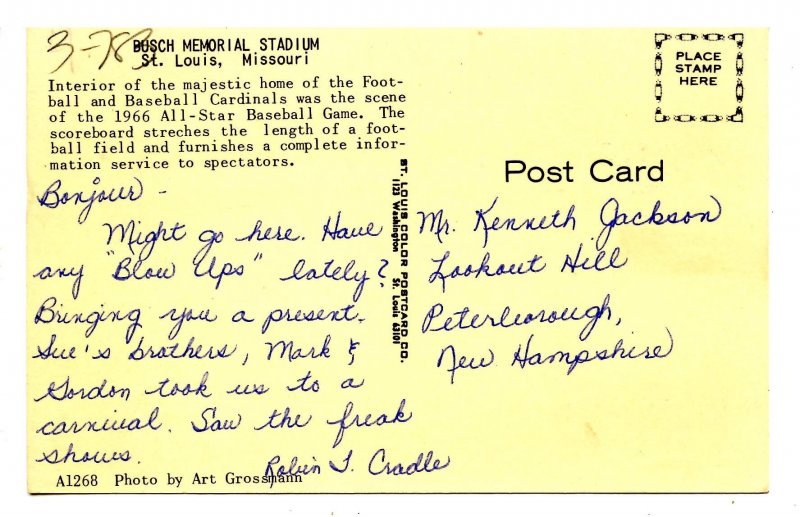 3-783
BUSCH MEMORIAL STADIUM
St. Louis, Missouri
Interior of the majestic home of the Foot-
ball and Baseball Cardinals was the scene
of the 1966 All-Star Baseball Game. The
scoreboard streches the length of a foot-
ball field and furnishes a complete infor-
mation service to spectators.
Bonjour -
Might go here. Have
any "Blow Ups" lately?
Bringing you a present.
Sue's brothers, Mark &
Gordon took us to a
carnival. Saw the freak
shows.
Robin T. Cradle
A1268 Photo by Art Grossmann
ST. LOUIS COLOR POSTCARD CO.
1123 Washington St. Louis 63101
PLACE
STAMP
HERE
Post Card
Mr. Kenneth Jackson
Lookout Hill
Peterborough,
New Hampshire